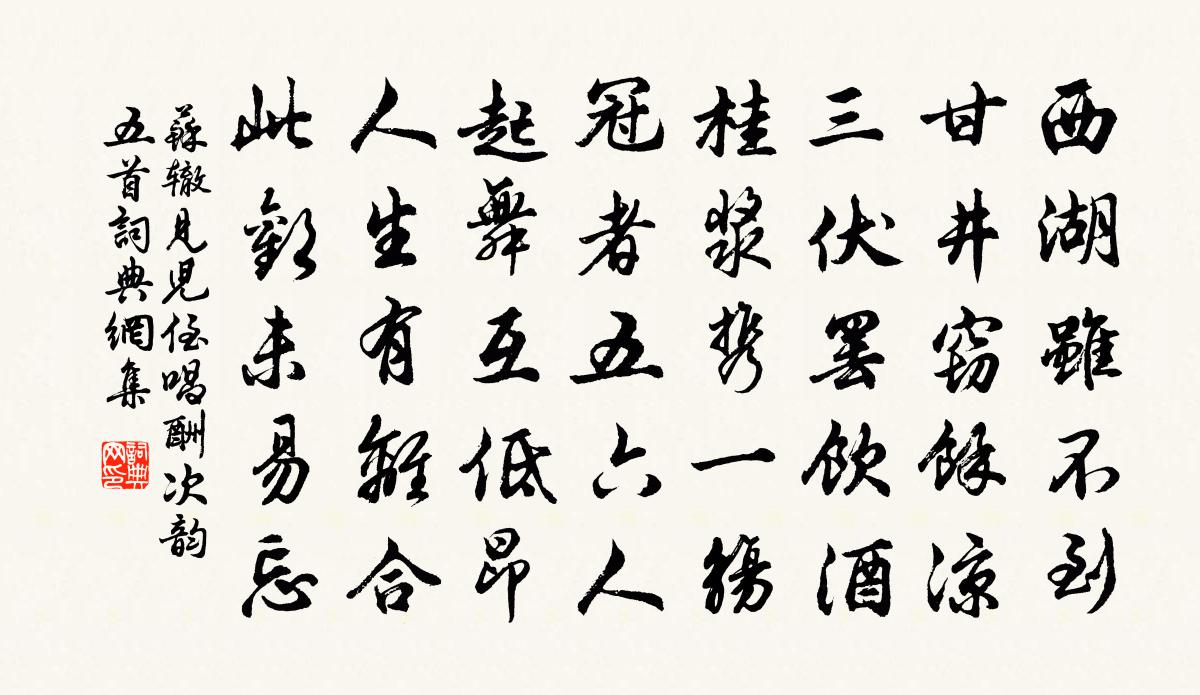 西湖雖不到
甘井窃餘涼
三伏罢飲酒
桂漿携一觴
冠者五六人
起舞互低昂
人生有離合
此歡未易忘
蘇辙見児侄唱酬次韵
五首詞典網集
詞典网印